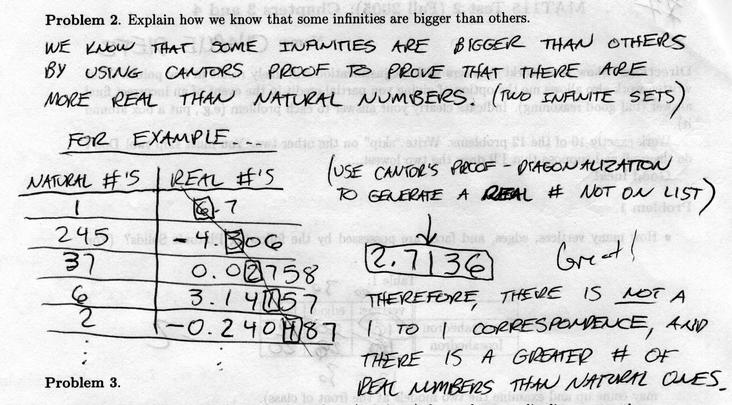 Problem 2. Explain how we know that some infinities are bigger than others.
WE KNOW THAT SOME INFINITIES ARE BIGGER THAN OTHERS
BY USING CANTORS PROOF TO PROVE THAT THERE ARE
MORE REAL THAN NATURAL NUMBERS. (TWO INFINITE SETS)
FOR EXAMPLE...
NATURAL #'S REAL #'S
1 6.7
245 -4.306
37 0.02758
6 3.14157
2 -0.240487
(USE CANTOR'S PROOF - DIAGONALIZATION
TO GENERATE A REAL # NOT ON LIST)
2.7136
Great!
THEREFORE, THERE IS NOT A
1 TO 1 CORRESPONDENCE, AND
THERE IS A GREATER # OF
REAL NUMBERS THAN NATURAL ONES.
Problem 3.